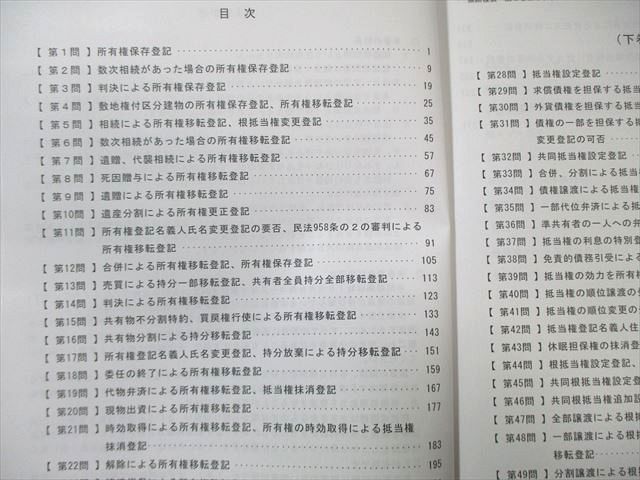 目 次
【 第1問 】所有権保存登記 ……………… 1
【 第2問 】数次相続があった場合の所有権保存登記 ……………… 9
【 第3問 】判決による所有権保存登記 ……………… 19
【 第4問 】敷地権付区分建物の所有権保存登記、所有権移転登記 ……………… 25
【 第5問 】相続による所有権移転登記、根抵当権変更登記 ……………… 35
【 第6問 】数次相続があった場合の所有権移転登記 ……………… 45
【 第7問 】遺贈、代襲相続による所有権移転登記 ……………… 57
【 第8問 】死因贈与による所有権移転登記 ……………… 67
【 第9問 】遺贈による所有権移転登記 ……………… 75
【 第10問 】遺産分割による所有権更正登記 ……………… 83
【 第11問 】所有権登記名義人氏名変更登記の要否、民法958条の2の審判による
所有権移転登記 ……………… 91
【 第12問 】合併による所有権移転登記、所有権保存登記 ……………… 105
【 第13問 】売買による持分一部移転登記、共有者全員持分全部移転登記 ……………… 113
【 第14問 】判決による所有権移転登記 ……………… 123
【 第15問 】共有物不分割特約、買戻権行使による所有権移転登記 ……………… 133
【 第16問 】共有物分割による持分移転登記 ……………… 143
【 第17問 】所有権登記名義人氏名変更登記、持分放棄による持分移転登記 … 151
【 第18問 】委任の終了による所有権移転登記 ……………… 159
【 第19問 】代物弁済による所有権移転登記、抵当権抹消登記 ……………… 167
【 第20問 】現物出資による所有権移転登記 ……………… 177
【 第21問 】時効取得による所有権移転登記、所有権の時効取得による抵当権
抹消登記 ……………… 183
【 第22問 】解除による所有権移転登記 ……………… 195
(下巻
【 第28問 】抵当権設定登記 ………
【 第29問 】求償債権を担保する抵当
【 第30問 】外貨債権を担保する抵当
【 第31問 】債権の一部を担保する抵
変更登記の可否 ………
【 第32問 】共同抵当権設定登記 …
【 第33問 】合併、分割による抵当
【 第34問 】債権譲渡による抵当権
【 第35問 】一部代位弁済による抵
【 第36問 】準共有者の一人への弁
【 第37問 】抵当権の利息の特別登
【 第38問 】免責的債務引受による
【 第39問 】抵当権の効力を所有権
【 第40問 】抵当権の順位譲渡の
【 第41問 】抵当権の順位変更の
【 第42問 】抵当権登記名義人住
【 第43問 】休眠担保権の抹消登
【 第44問 】根抵当権設定登記、
【 第45問 】共同根抵当権設定登
【 第46問 】共同根抵当権追加設
【 第47問 】全部譲渡による根抵
【 第48問 】一部譲渡による根抵
移転登記 ………
【 第49問 】分割譲渡による根